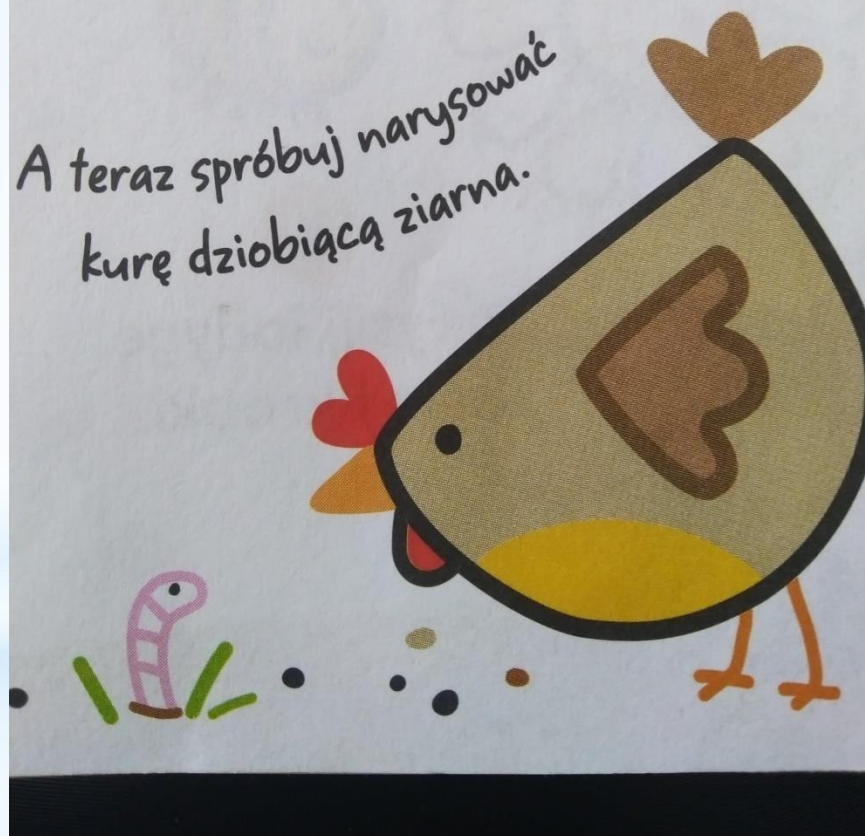 A teraz spróbuj narysować
kurę dziobiącą ziarna.